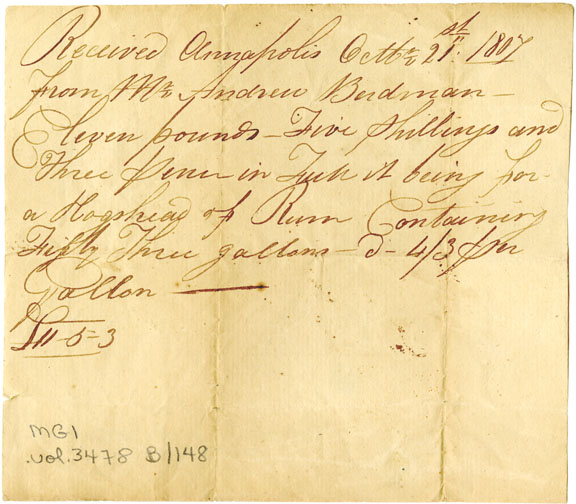 Received Annapolis Octbr 21st 1807
from Mr Andrew Berdman —
Eleven pounds – Five Shillings and
Three pence in full it being for
a Hogshead of Rum Containing
Fifty Three gallons – @ – 4/3 per
Gallon ———
£11-5-3
MG1
vol.3478 B/148